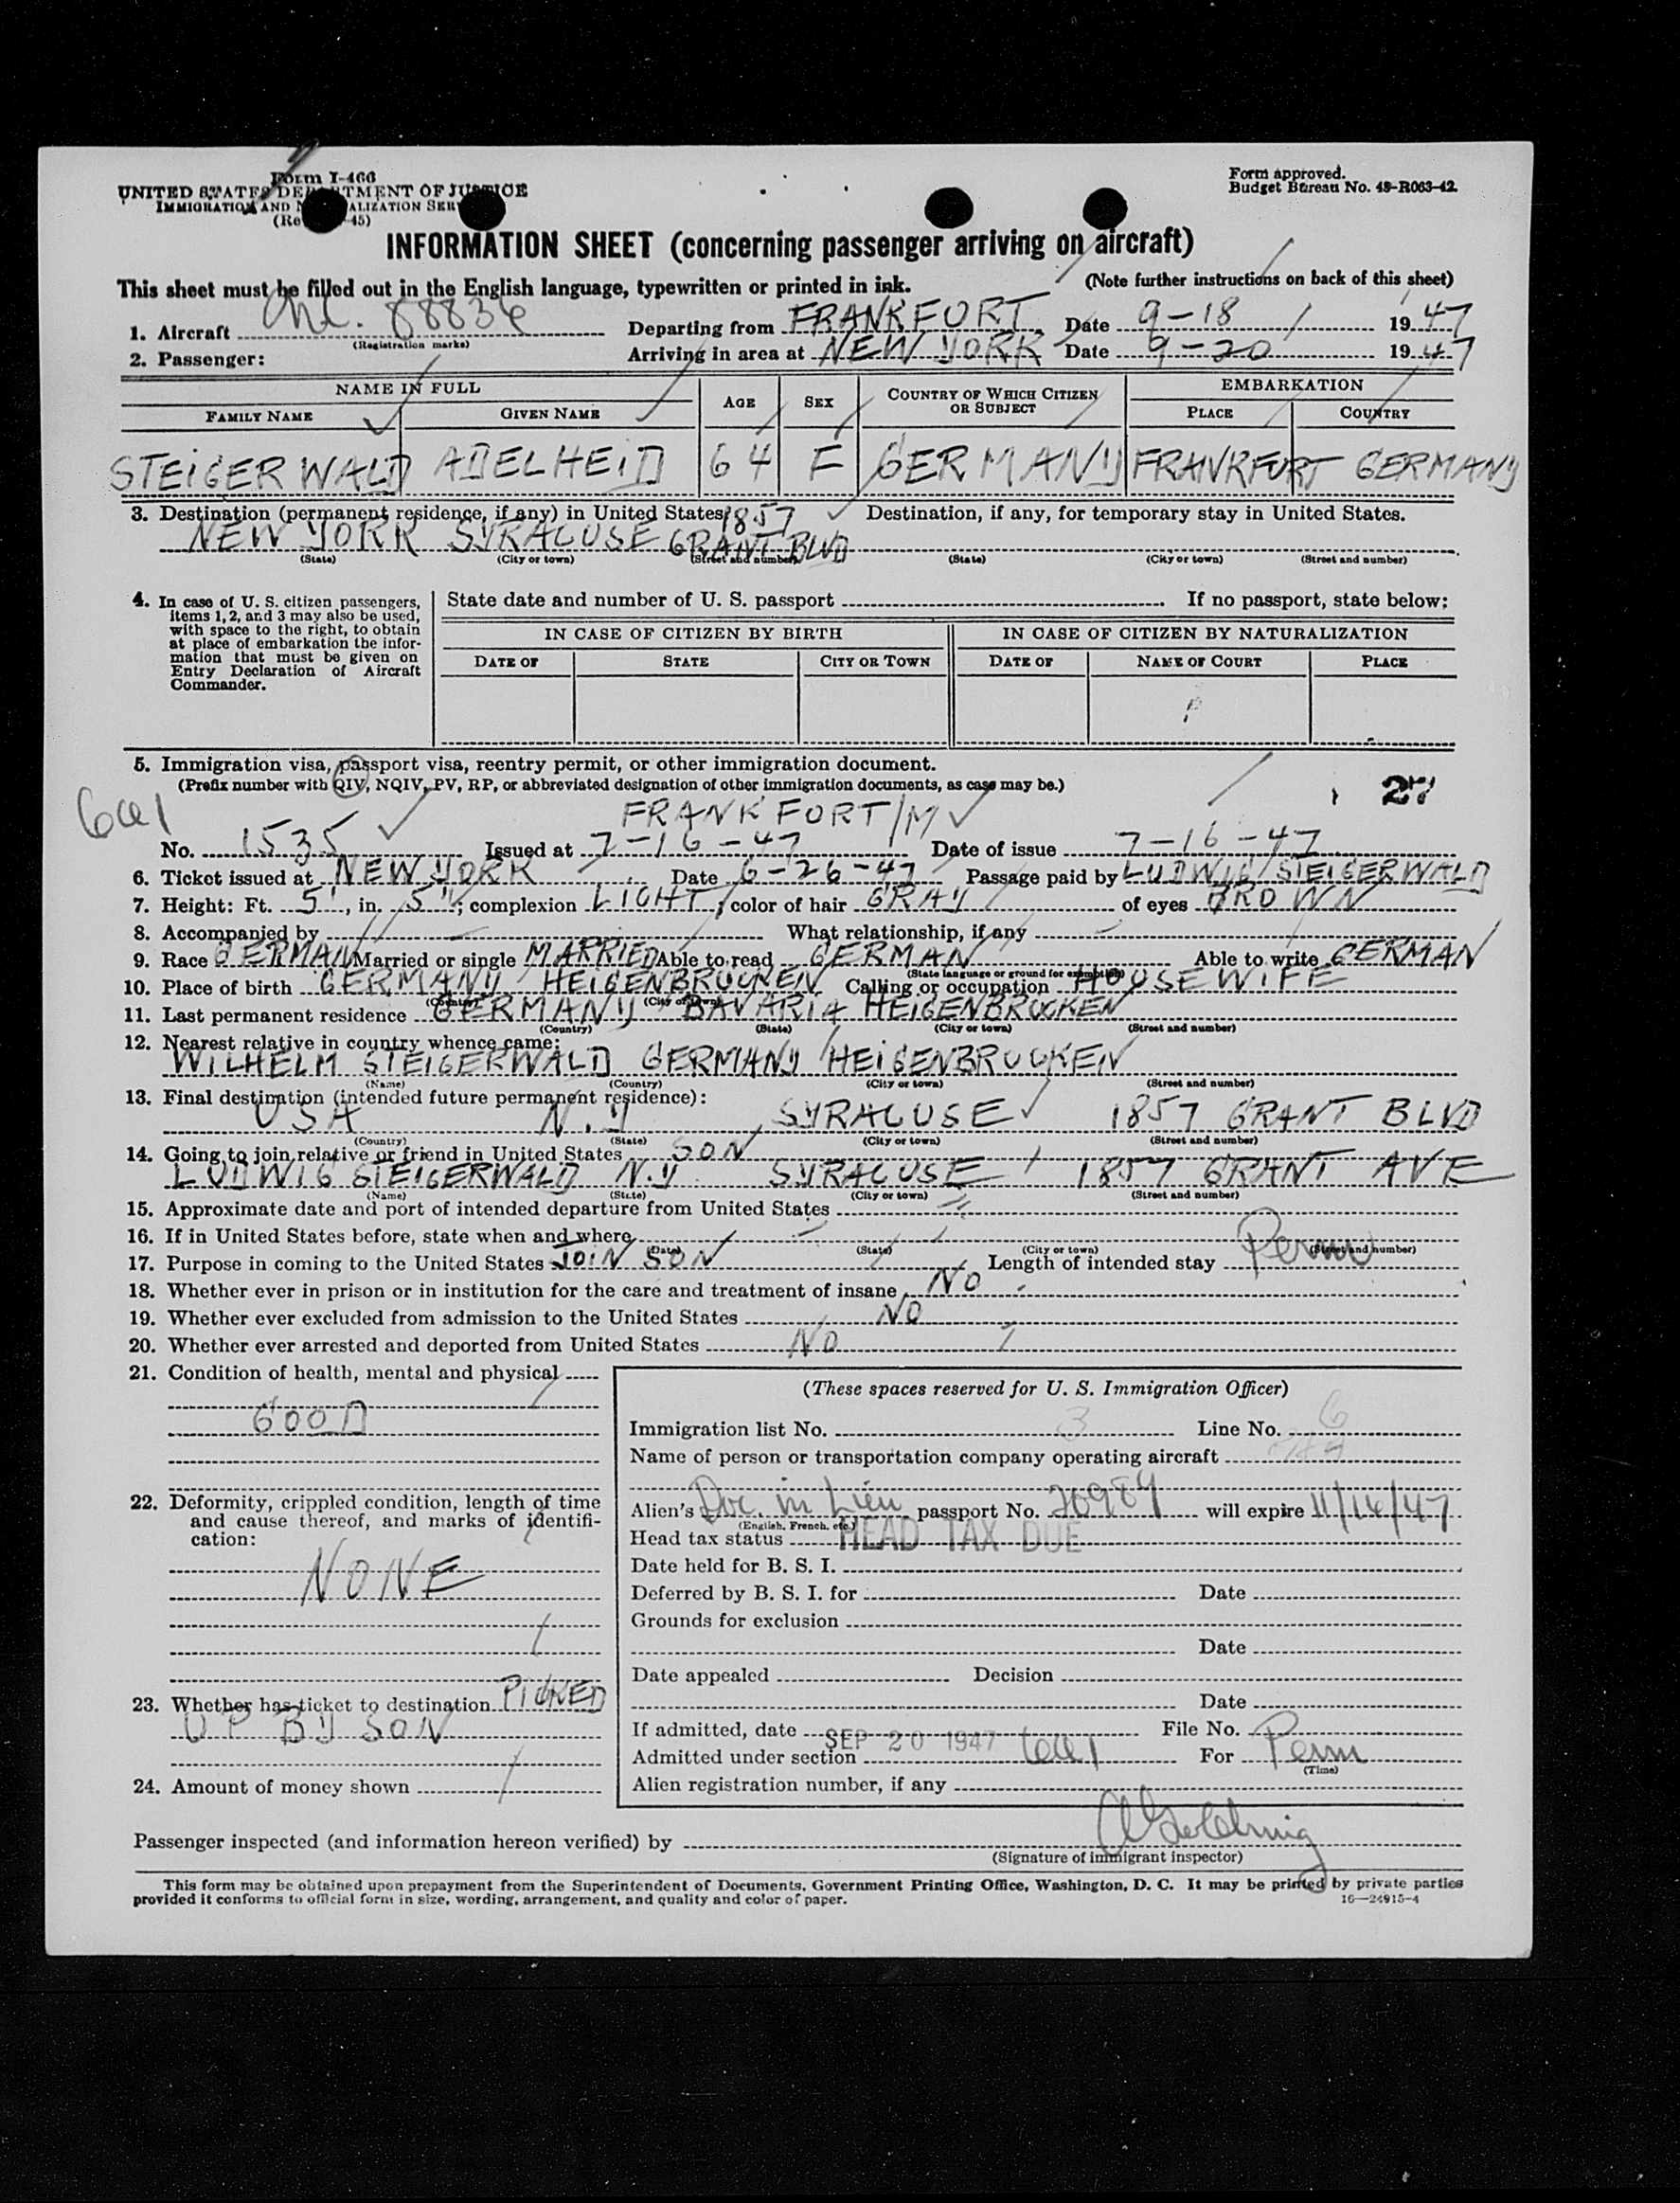 Form I-466
UNITED STATES DEPARTMENT OF JUSTICE
IMMIGRATION AND NATURALIZATION SERVICE
45)
Form approved.
Budget Bureau No. 43-R063-42
INFORMATION SHEET (concerning passenger arriving on aircraft)
This sheet must be filled out in the English language, typewritten or printed in ink.
(Note further instructions on back of this sheet)
1. Aircraft 88836 Departing from FRANKFORT Date 9-18 1947
(Registration marks)
2. Passenger: Arriving in area at NEW YORK Date 9-20 1947
NAME IN FULL AGE SEX COUNTRY OF WHICH CITIZEN OR SUBJECT EMBARKATION
FAMILY NAME GIVEN NAME PLACE COUNTRY
STEIGERWALD ADELHEID 64 F GERMANY FRANKFURT GERMANY
3. Destination (permanent residence, if any) in United States 1857 Destination, if any, for temporary stay in United States.
NEW YORK SYRACUSE GRANT BLVD
(State) (City or town) (Street and number) (State) (City or town) (Street and number)
4. In case of U. S. citizen passengers,
items 1, 2, and 3 may also be used,
with space to the right, to obtain
at place of embarkation the infor-
mation that must be given on
Entry Declaration of Aircraft
Commander.
State date and number of U. S. passport If no passport, state below:
IN CASE OF CITIZEN BY BIRTH IN CASE OF CITIZEN BY NATURALIZATION
DATE OF STATE CITY OR TOWN DATE OF NAME OF COURT PLACE
5. Immigration visa, passport visa, reentry permit, or other immigration document.
(Prefix number with QIV, NQIV, PV, RP, or abbreviated designation of other immigration documents, as case may be.)
27
6a1
FRANKFORT/M
No. 1535 Issued at 7-16-47 Date of issue 7-16-47
6. Ticket issued at NEW YORK Date 6-26-47 Passage paid by LUDWIG STEIGERWALD
7. Height: Ft. 5', in. 5"; complexion LIGHT; color of hair GRAY of eyes BROWN
8. Accompanied by What relationship, if any
9. Race GERMAN Married or single MARRIED Able to read GERMAN Able to write GERMAN
(State language or ground for exemption)
10. Place of birth GERMANY HEIGENBRUCKEN Calling or occupation HOUSEWIFE
(Country) (City or town)
11. Last permanent residence GERMANY BAVARIA HEIGENBRUCKEN
(Country) (State) (City or town) (Street and number)
12. Nearest relative in country whence came:
WILHELM STEIGERWALD GERMANY HEIGENBRUCKEN
(Name) (Country) (City or town) (Street and number)
13. Final destination (intended future permanent residence):
USA N.Y SYRACUSE 1857 GRANT BLVD
(Country) (State) (City or town) (Street and number)
14. Going to join relative or friend in United States SON
LUDWIG STEIGERWALD N.Y SYRACUSE 1857 GRANT AVE
(Name) (State) (City or town) (Street and number)
15. Approximate date and port of intended departure from United States
16. If in United States before, state when and where
(Date) (State) (City or town) (Street and number)
17. Purpose in coming to the United States JOIN SON Length of intended stay Perm
18. Whether ever in prison or in institution for the care and treatment of insane NO
19. Whether ever excluded from admission to the United States NO
20. Whether ever arrested and deported from United States NO
21. Condition of health, mental and physical
GOOD
22. Deformity, crippled condition, length of time
and cause thereof, and marks of identifi-
cation:
NONE
23. Whether has ticket to destination PICKED
UP BY SON
24. Amount of money shown
(These spaces reserved for U. S. Immigration Officer)
Immigration list No. 3 Line No. 6
Name of person or transportation company operating aircraft
Alien's Doc. in Lieu passport No. 20984 will expire 11/16/47
(English, French, etc.)
Head tax status HEAD TAX DUE
Date held for B. S. I.
Deferred by B. S. I. for Date
Grounds for exclusion
Date
Date appealed Decision
Date
If admitted, date SEP 20 1947 File No.
Admitted under section 6a1 For Perm
(Time)
Alien registration number, if any
Passenger inspected (and information hereon verified) by
(Signature of immigrant inspector)
This form may be obtained upon prepayment from the Superintendent of Documents, Government Printing Office, Washington, D. C. It may be printed by private parties
provided it conforms to official form in size, wording, arrangement, and quality and color of paper.
16—24915-4